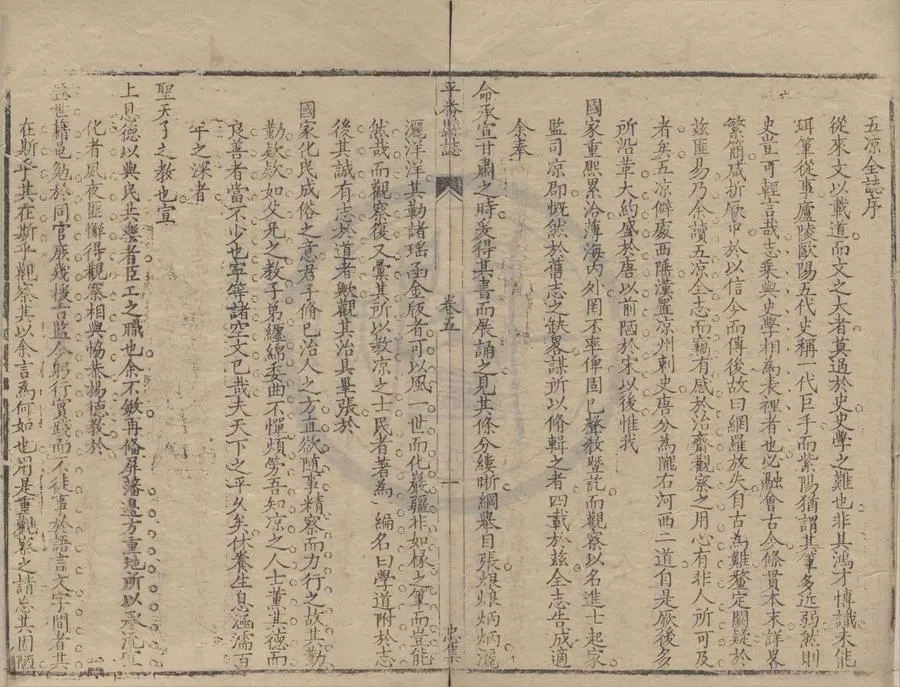 五凉全誌序
從來文以載道而文之大者莫過於史史學之難也非其鴻才博識未能
珥筆從事廬陵歐陽五代史稱一代巨手而紫陽猶謂其筆多近弱然則
史豈可輕言哉志乘與史學相爲表裡者也必融會古今條貫本末詳畧
繁簡咸折厥中於以信今而傳後故曰網羅放失自古為難鑒定闕疑於
茲匪易乃余讀五凉全志而竊有感於治齋觀察之用心有非人所可及
者矣五凉僻處西陲漢置凉州刺史唐分為隴右河西二道自是厥後多
所沿革大約盛於唐以前陋於宋以後惟我
國家重熙累洽薄海內外罔不率俾固已聲教曁訖而觀察以名進士起家
監司凉郡慨然於舊志之缺畧謀所以脩輯之者四載於茲全志告成適
余奉
命承宣甘肅之時爰得其書而展誦之見其條分縷晰綱舉目張烺烺炳炳灑
平番縣誌
卷五
一
忠集
灑洋洋其勒諸瑶函金版者可以風一世而化巖疆非如椽之筆而豈能
然哉而觀察復又彙其所以教凉之士民者著為一編名曰學道附於志
後其誠有志於道者歟觀其治具畢張於
國家化民成俗之意君子脩已治人之方直欲隨事精察而力行之故其勤
勤欵欵如父兄之教子弟纏綿委曲不憚頻勞吾知凉之人士董其德而
良善者當不少也寧等諸空文已哉夫天下之平久矣休養生息涵濡百
年之深者
聖天子之教也宣
上恩德以與民共樂者臣工之職也余不敏再脩屏藩邊方重地所以承流宣
化者夙夜匪懈得觀察相與恊恭揚德教於
世藉黽勉於同官庶幾後言監今躬行實踐而不徒事於語言文字間者其
在斯乎其在斯乎觀察其以余言為何如也用是重觀察之請忘其固陋